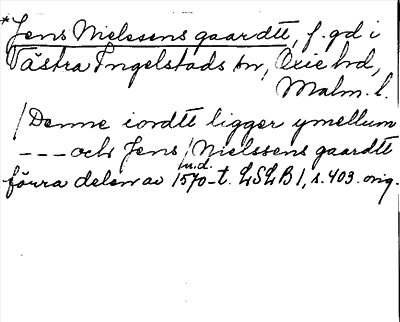 *Jens Nielssens gaardtt, f. gd i
Västra Ingelstads sn, Oxie hd,
Malm. l.
/Denne iordtt ligger ymellum
--- och Jens /Nielssens gaardtt
u.d.
förra delen av 1570-t. LSLB 1, s. 403. orig.